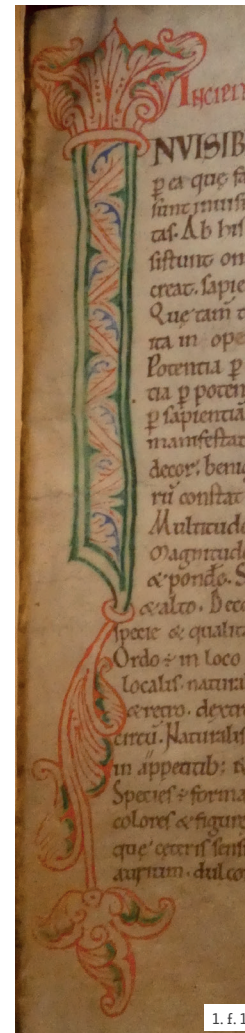 INCIPI
NVISIB
p ea que fa
sunt inuisi
tas. Ab his
sistunt on
creat. sapie
Quę tam̄ t
ita in ope
Potentia p
tia p poten
p sapientia
manifestat
decor; beni
rū constat
Multitudo
Magnitudo
& pondo. S
& alto. Dece
specie & qualita
Ordo ÷ in loco
localis. natura
& retro. dextr
circū. Naturalis
in appetitib;
Species ÷ forma
colores & figure
que ceteris sensi
aurium. dulco
1. f. 1